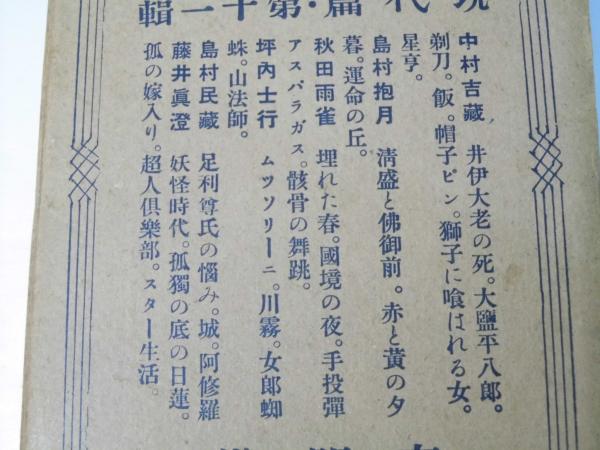 現代篇・第十一輯
中村吉藏 井伊大老の死。大鹽平八郎。
剃刀。飯。帽子ピン。獅子に喰はれる女。
星亨。
島村抱月 淸盛と佛御前。赤と黃の夕
暮。運命の丘。
秋田雨雀 埋れた春。國境の夜。手投彈
アスパラガス。骸骨の舞跳。
坪內士行 ムツソリーニ。川霧。女郎蜘
蛛。山法師。
島村民藏 足利尊氏の惱み。城。阿修羅
藤井眞澄 妖怪時代。孤獨の底の日蓮。
狐の嫁入り。超人俱樂部。スター生活。